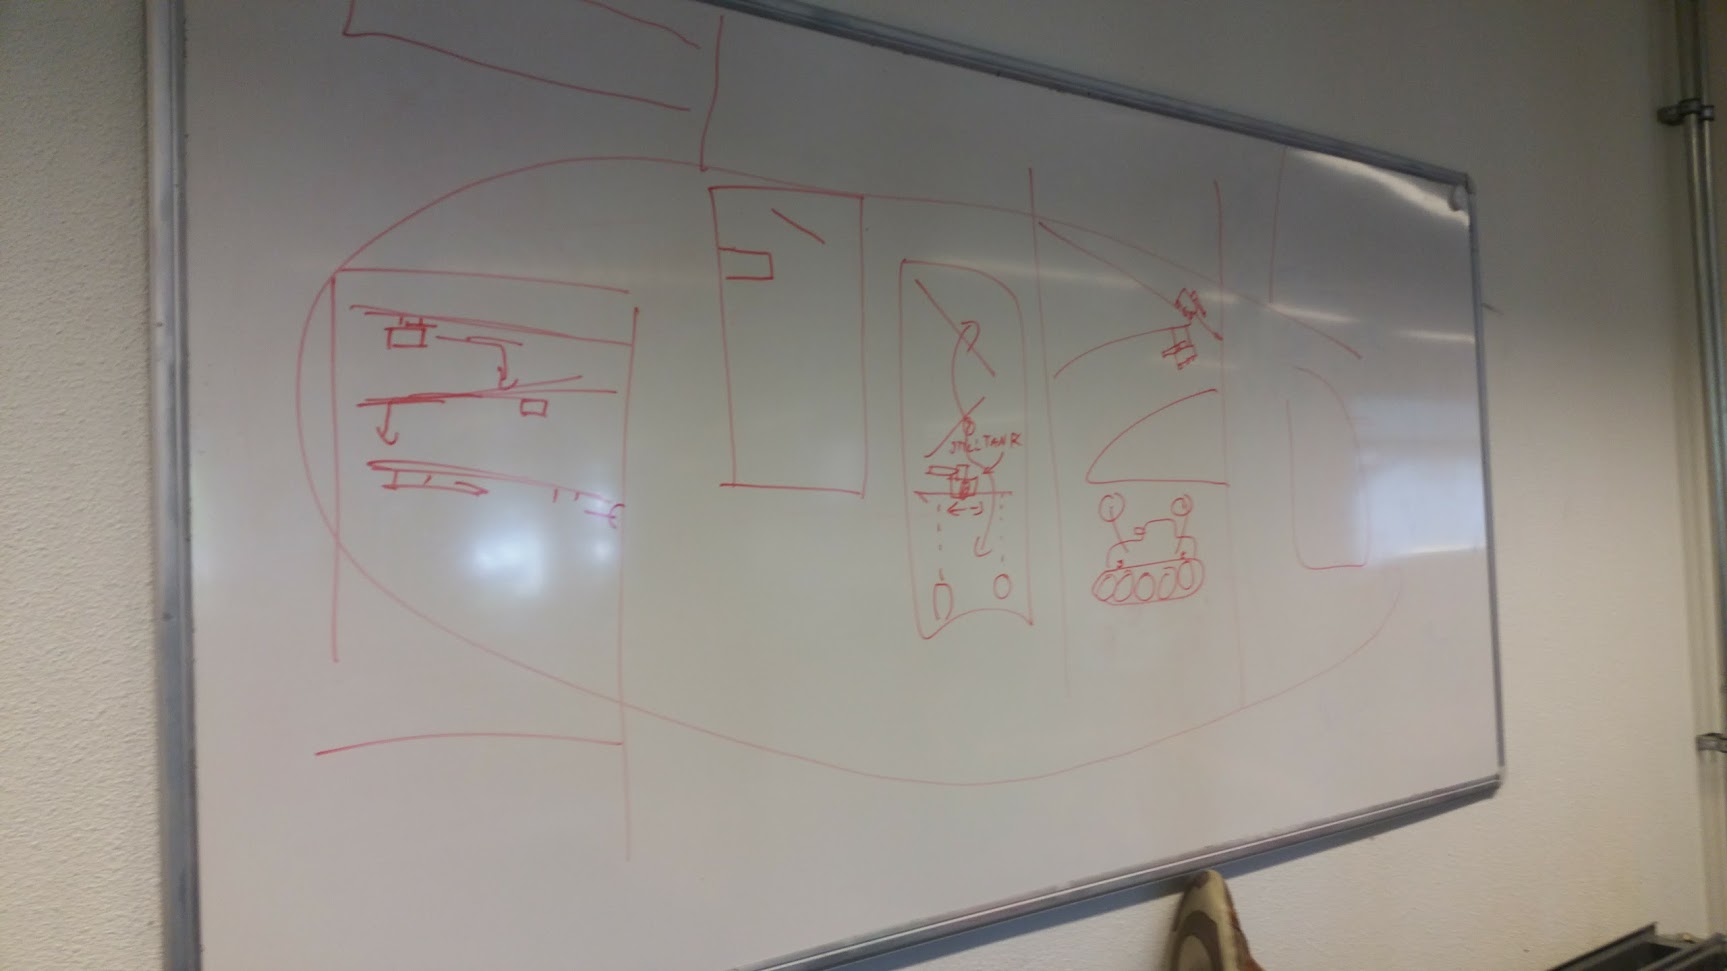 STILL TANK